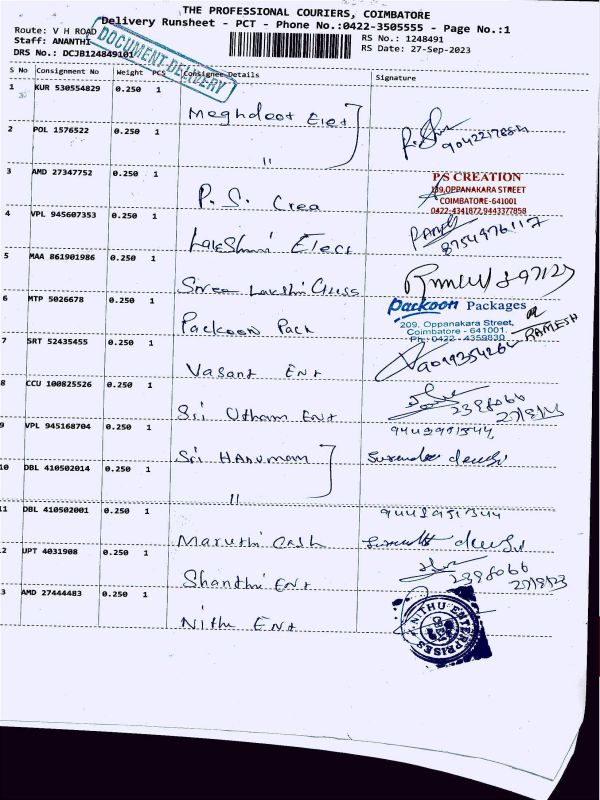 THE PROFESSIONAL COURIERS, COIMBATORE
Delivery Runsheet - PCT - Phone No.:0422-3505555 - Page No.:1
Route: V H ROAD
RS No.: 1248491
Staff: ANANTHI
RS Date: 27-Sep-2023
DRS No.: DCJB124849101
DOCUMENT DELIVERY
S No Consignment No Weight PCS Consignee Details Signature
1 KUR 530554829 0.250 1 Meghdoot Elet
2 POL 1576522 0.250 1 "
3 AMD 27347752 0.250 1 P. S. Crea
P.S CREATION
139,OPPANAKARA STREET
COIMBATORE-641001
0422-4341872,9443377858
4 VPL 945607353 0.250 1 Lakshmi Elect
8754976117
5 MAA 861901986 0.250 1 Sree Lakshi Glass
6 MTP 5026678 0.250 1 Packoon Pack
Packoon Packages
209, Oppanakara Street,
Coimbatore - 641001.
Ph: 0422 - 4359830
RAMESH
7 SRT 52435455 0.250 1 Vasant Ent
8 CCU 100825526 0.250 1 Sri Utham Ent
2398066
9 VPL 945168704 0.250 1 Sri Hanumam
10 DBL 410502014 0.250 1 "
11 DBL 410502001 0.250 1 Maruthi Cash
12 UPT 4031908 0.250 1 Shanthi Ent
2398066
13 AMD 27444483 0.250 1 Nithu Ent
NITHU ENTERPRISES